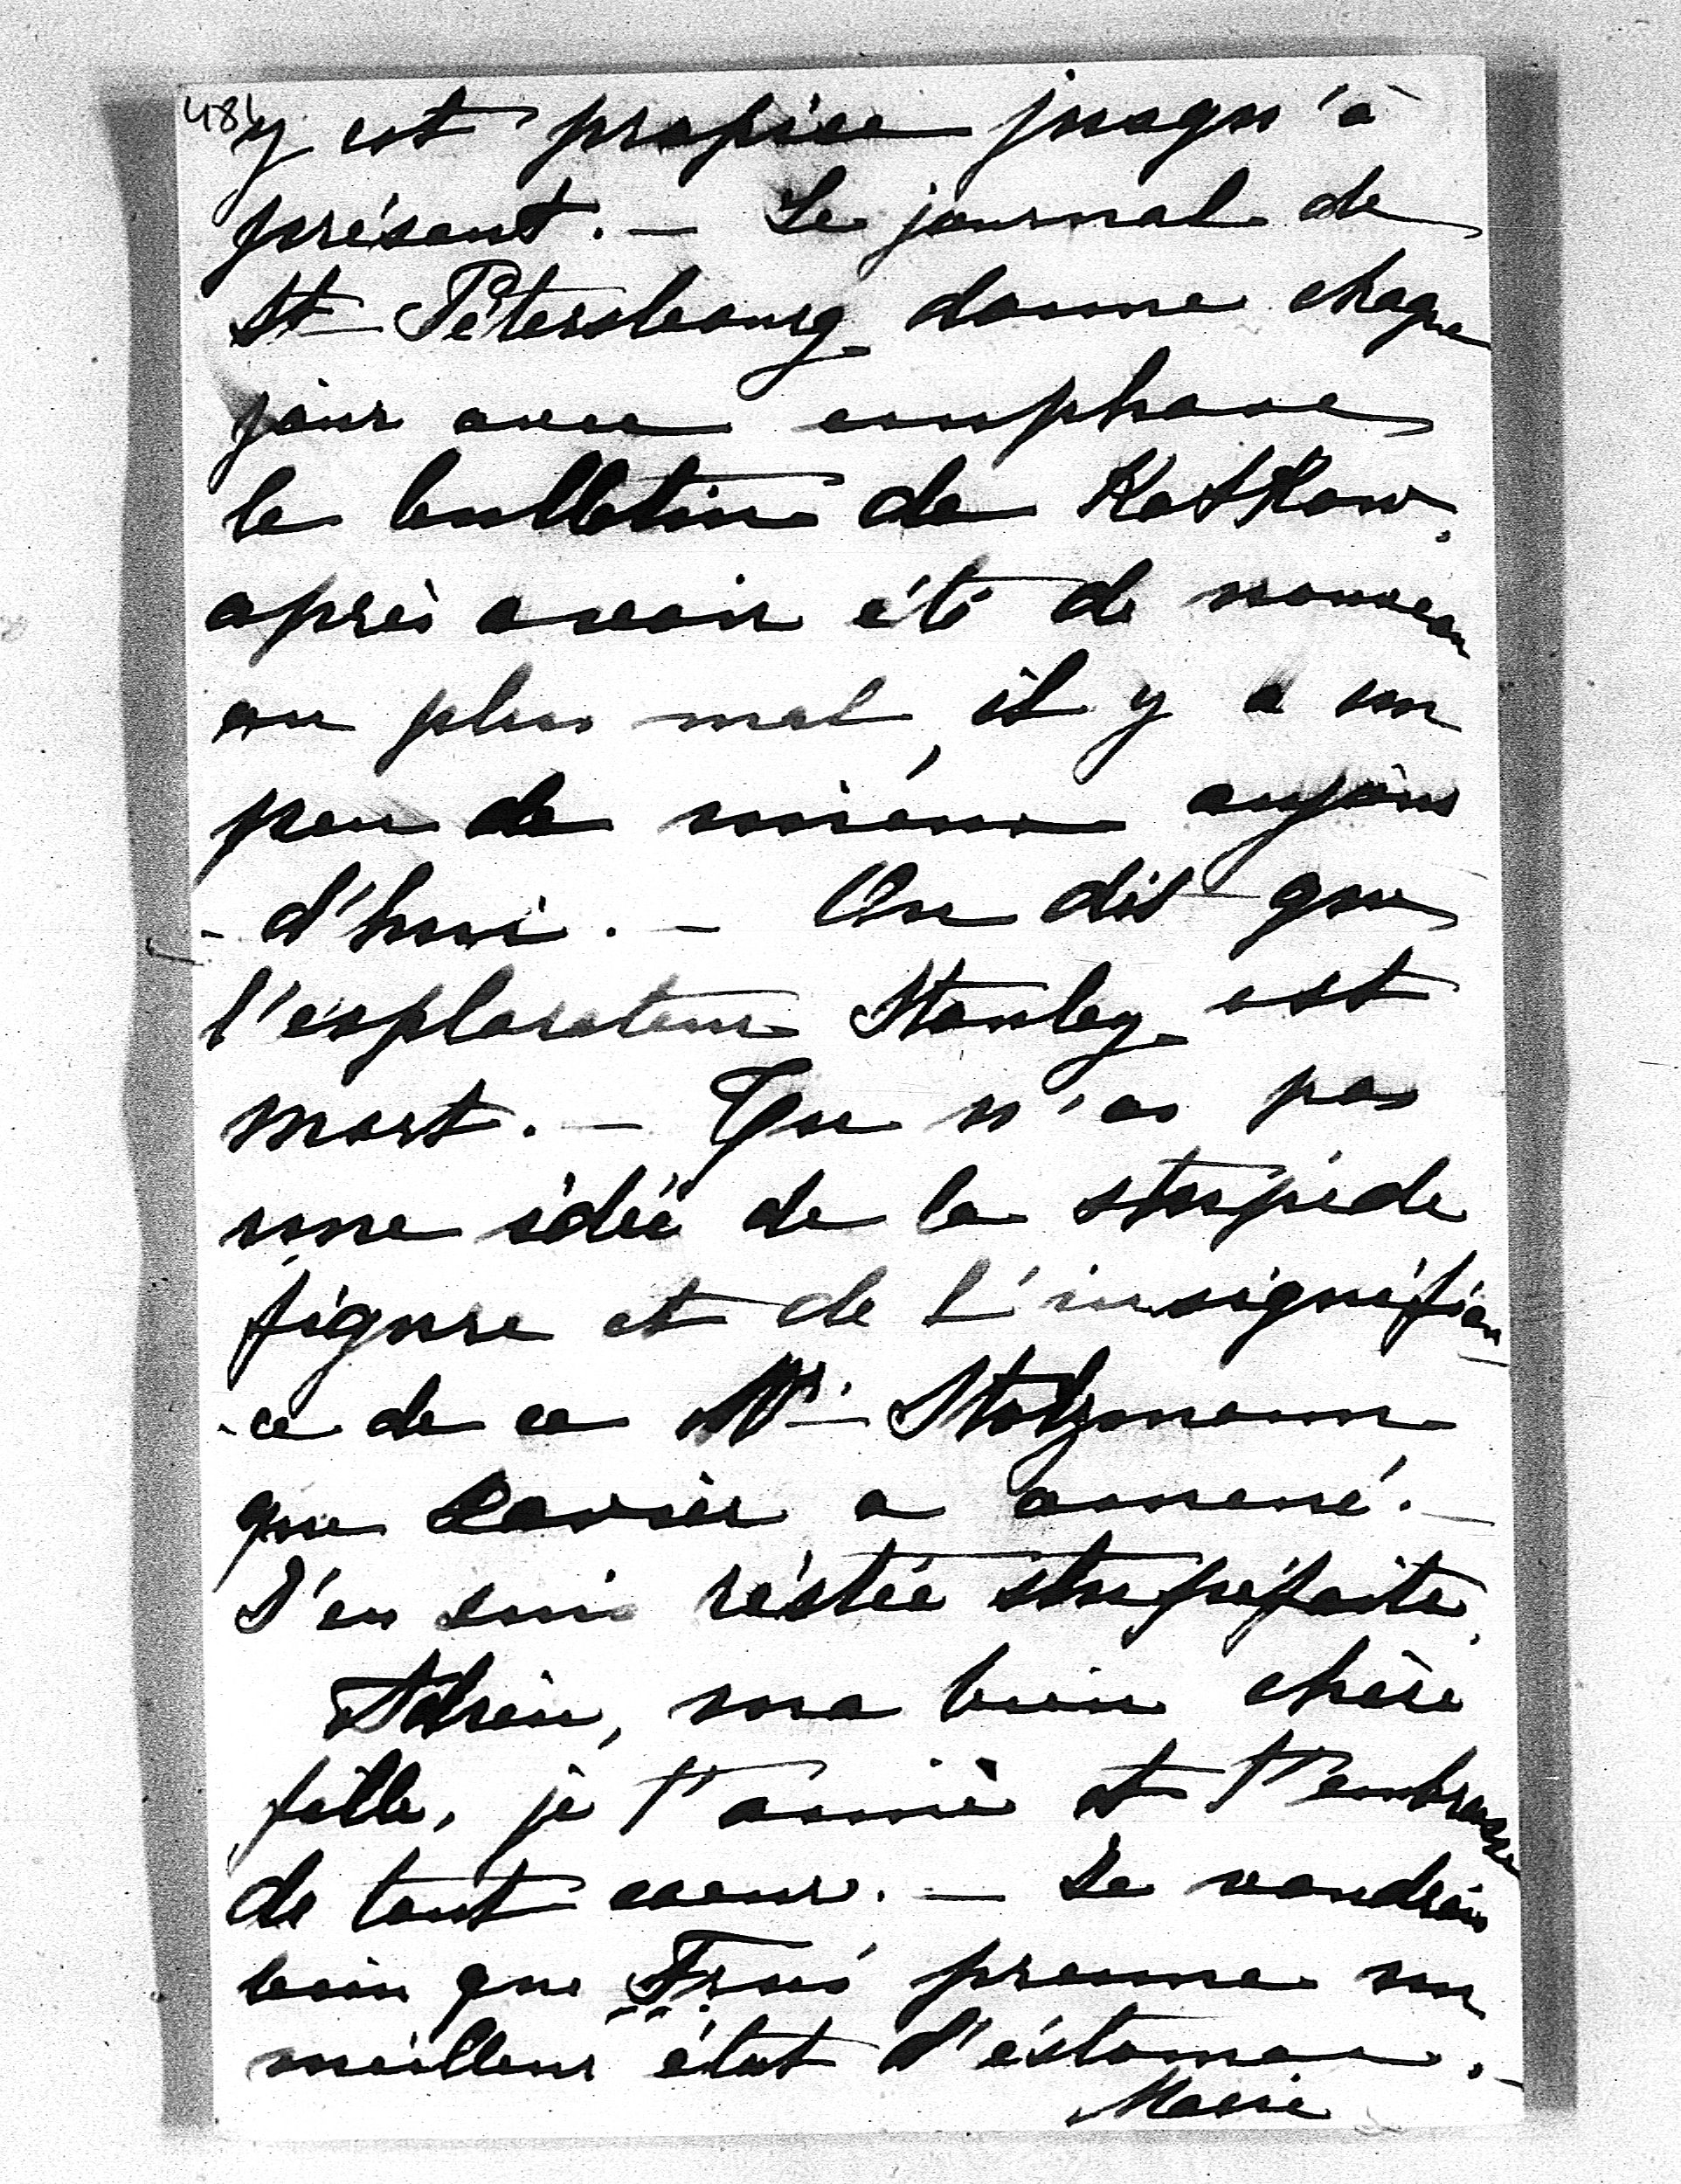 484
y est propice jusqu'à
présent. — Le journal de
St Pétersbourg donne chaque
jour avec emphase
le bulletin de Katkow,
après avoir été de nouveau
au plus mal, il y a un
peu de mieux aujour
- d'hui. — On dit que
l'explorateur Stanley est
mort. — Tu n'as pas
une idée de la stupide
figure et de l'insignifian
- ce de ce Mr. Stolzmann
que Xavier a amené. —
J'en suis réstée stupéfaite.
Adieu, ma bien chère
fille, je t'aime et t'embrasse
de tout coeur. — Je voudrais
bien que prenne un
meilleur état d'éstomac. —
Marie